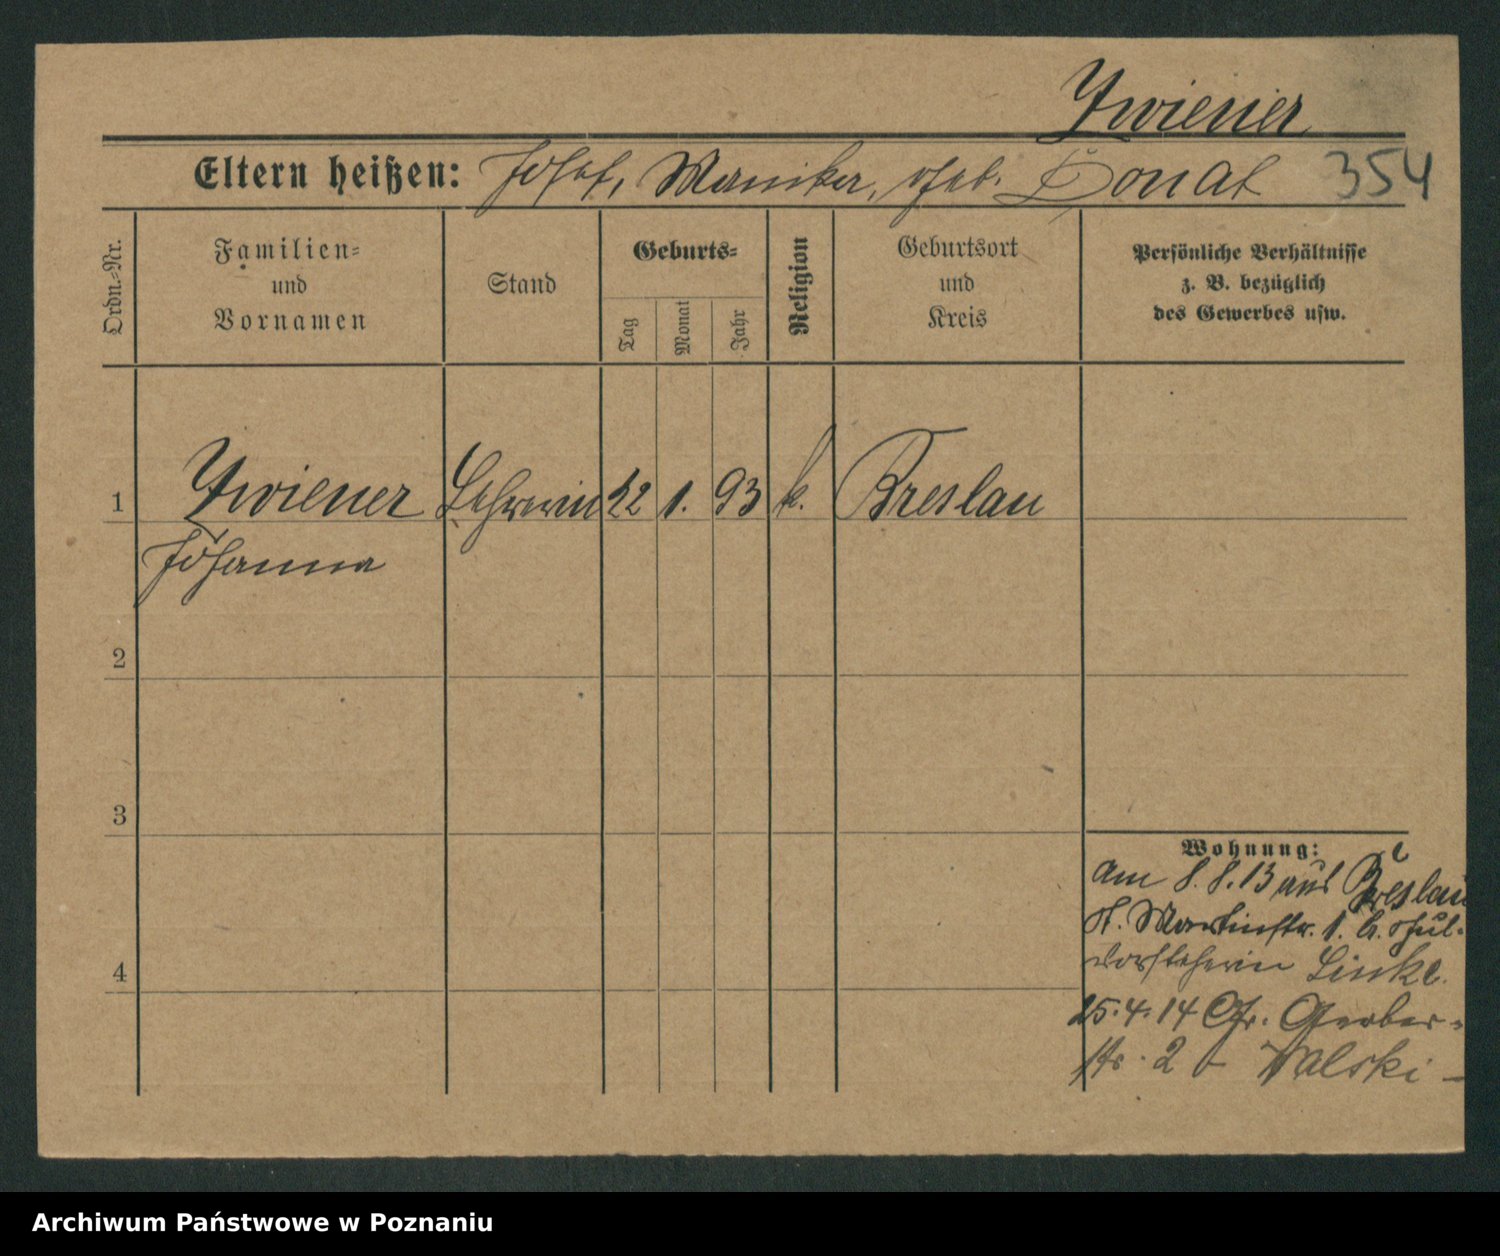 Zwiener
Eltern heißen: Josef, Monika, geb. Donat 354
Ordn.-Nr.
Familien-
und
Vornamen
Stand
Geburts-
Tag
Monat
Jahr
Religion
Geburtsort
und
Kreis
Persönliche Verhältnisse
z. B. bezüglich
des Gewerbes usw.
1 Zwiener Lehrerin 22 1. 93 k. Breslau
Johanna
2
3
4
Wohnung:
am 8.8.13 aus Breslau
St. Martinstr. 1. b. Schul-
vorsteherin Linke.
25.4.14 Gr. Gerber-
str. 2 Walski -
Archiwum Państwowe w Poznaniu